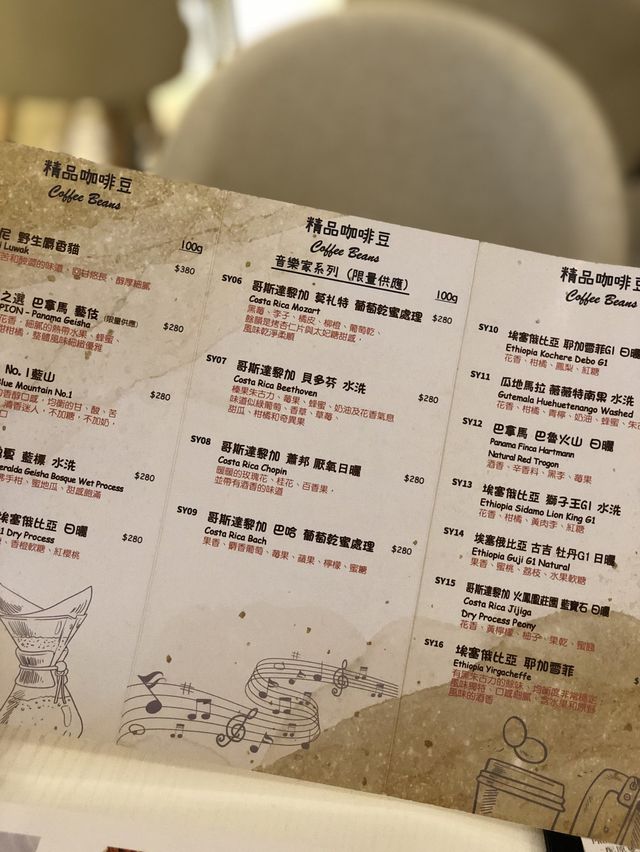 精品咖啡豆
Coffee Beans
100g
尼 野生麝香貓
Luwak
$380
之選 巴拿馬 藝伎 (限量供應)
PION - Panama Geisha
$280
花香，細膩的熱帶水果、蜂蜜、
No.1藍山
lue Mountain No.1
$280
藍標 水洗
eralda Geisha Bosque Wet Process
$280
佛手柑、蜜地瓜、甜感飽滿
埃塞俄比亞 日曬
1 Dry Process
$280
、香橙軟糖、紅櫻桃
精品咖啡豆
Coffee Beans
音樂家系列 (限量供應)
100g
SY06 哥斯達黎加 莫札特 葡萄乾蜜處理
Costa Rica Mozart
$280
黑莓、李子、橘皮、柳橙、葡萄乾、
餘韻是烤杏仁片與太妃糖甜感，
風味乾淨柔順
SY07 哥斯達黎加 貝多芬 水洗
Costa Rica Beethoven
$280
榛果朱古力、莓果、蜂蜜、奶油及花香氣息
味道似綠葡萄、香草、草莓、
甜瓜、柑橘和奇異果
SY08 哥斯達黎加 蕭邦 厭氧日曬
Costa Rica Chopin
$280
暖暖的玫瑰花、桂花、百香果，
並帶有酒香的味道
SY09 哥斯達黎加 巴哈 葡萄乾蜜處理
Costa Rica Bach
$280
果香、麝香葡萄、莓果、蘋果、檸檬、蜜糖
精品咖啡豆
Coffee Beans
SY10 埃塞俄比亞 耶加雪菲G1 日曬
Ethiopia Kochere Debo G1
花香、柑橘、鳳梨、紅糖
SY11 瓜地馬拉 薇薇特南果 水洗
Gutemala Huehuetenango Washed
花香、柑橘、青檸、奶油、蜂蜜、朱古
SY12 巴拿馬 巴魯火山 日曬
Panama Finca Hartmann
Natural Red Trogon
酒香、辛香料、黑李、莓果
SY13 埃塞俄比亞 獅子王G1 水洗
Ethiopia Sidamo Lion King G1
花香、柑橘、黃肉李、紅糖
SY14 埃塞俄比亞 古吉 牡丹G1 日曬
Ethiopia Guji G1 Natural
果香、蜜桃、荔枝、水果軟糖
SY15 哥斯達黎加 火鳳凰莊園 藍寶石 日曬
Costa Rica Jijiga
Dry Process Peony
花香、黃檸檬、柚子、果乾、蜜餞
SY16 埃塞俄比亞 耶加雪菲
Ethiopia Yirgacheffe
$
有黑朱古力的餘味、均衡度非常穩定
風味獨特、口感細膩、含水果和原野
風味的酒香